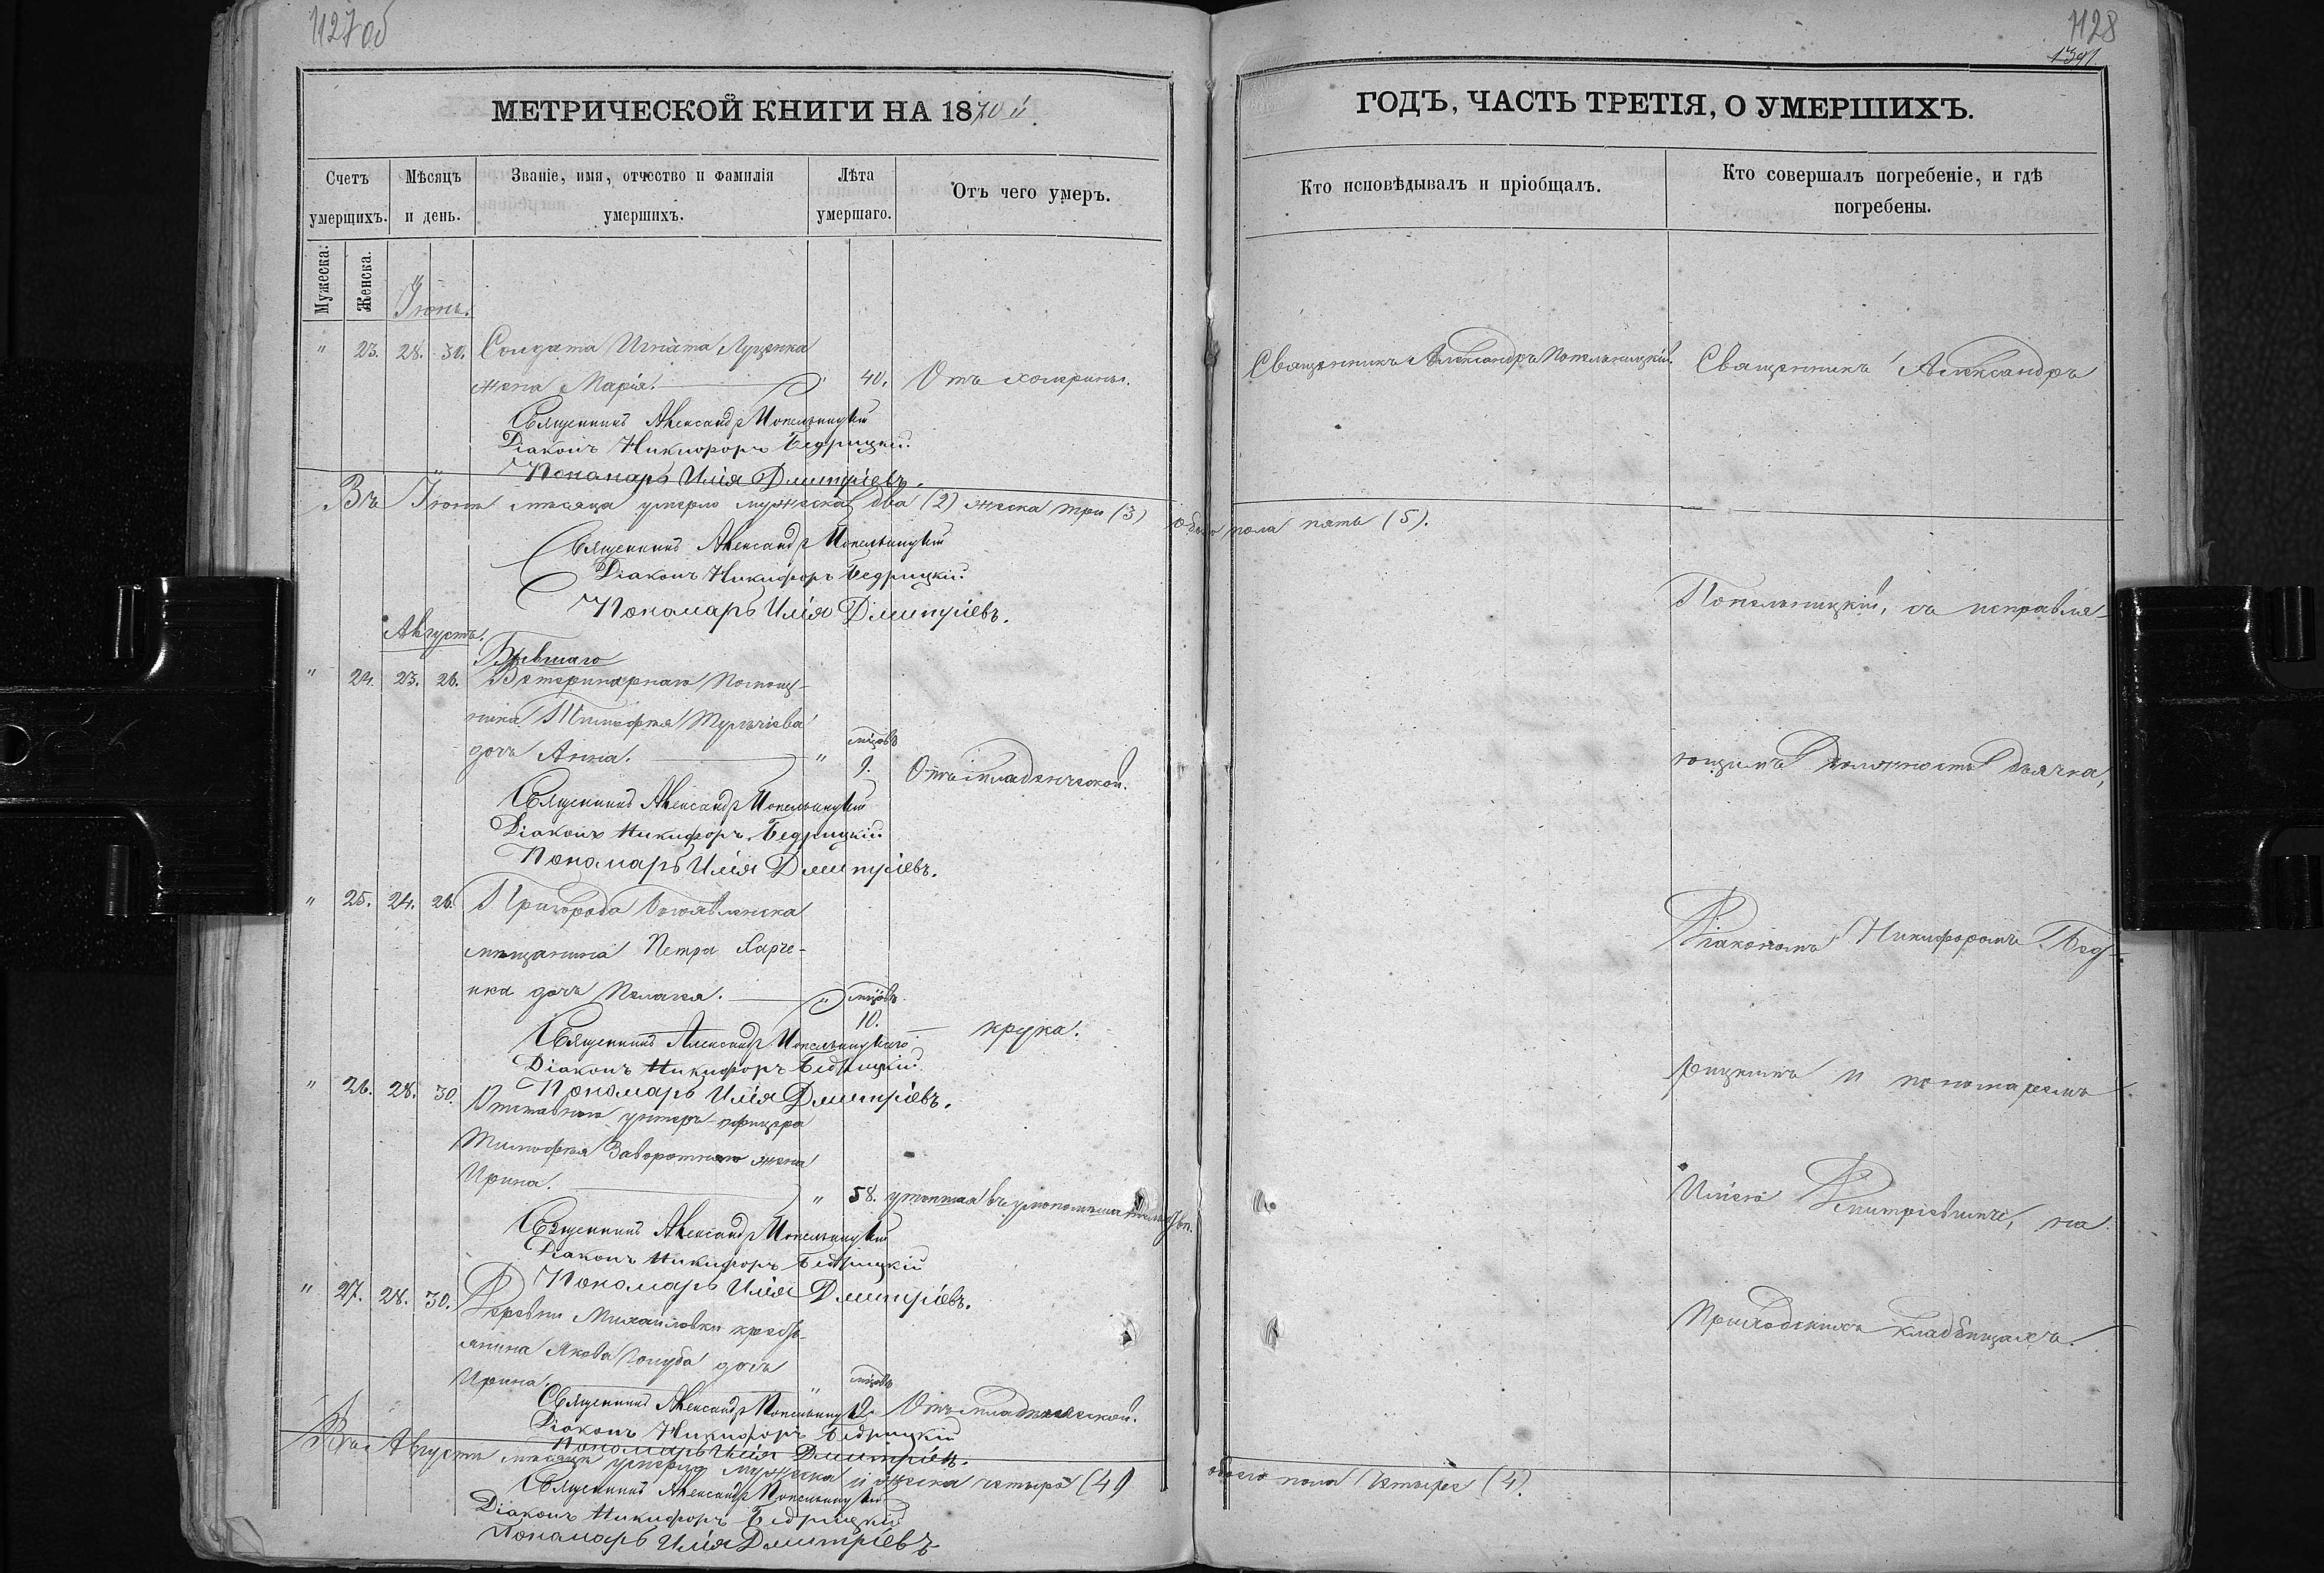 1127 об
1128
1391
МЕТРИЧЕСКОЙ КНИГИ НА 1870 й
ГОДЪ, ЧАСТЬ ТРЕТІЯ, О УМЕРШИХЪ.
Счетъ умершихъ.
Мѣсяцъ и день.
Званіе, имя, отчество и фамилія умершихъ.
Лѣта умершаго.
Отъ чего умеръ.
Кто исповѣдывалъ и пріобщалъ.
Кто совершалъ погребеніе, и гдѣ погребены.
Мужеска:
Женска.
" 23. 28. 30. Солдата Игната Луценка
жена Марія. " 40. Отъ холерины.
Священникъ Александръ Попельницкій
Діаконъ Никифоръ Бедрицкій.
Пономарь Илія Дмитріевъ.
мѣсяца умерло мужеска два (2) женска три (3) обоего пола пять (5).
Священникъ Александръ Попельницкій
Діаконъ Никифоръ Бедрицкій.
Пономарь Илія Дмитріевъ.
Августъ.
Бывшаго
" 24. 23. 26. Ветеринарнаго Помощ-
ника Тимофея
дочь Анна. " мѣсяцовъ 9. Отъ младенческой.
Священникъ Александръ Попельницкій
Діаконъ Никифоръ Бедрицкій
Пономарь Илія Дмитріевъ.
" 25. 24. 26. Пригорода Богоявленска
мѣщанина Петра Харче-
нка дочь Пелагея. " мѣсяцовъ 10. — крупа.
Священникъ Александръ Попельницкій
Діаконъ Никифоръ Бедрицкій
Пономарь Илія Дмитріевъ.
" 26. 28. 30. Отставнаго унтеръ-офицера
Тимофея Заворотняго жена
Ирина. " 58.
Священникъ Александръ Попельницкій
Діаконъ Никифоръ Бедрицкій
Пономарь Илія Дмитріевъ.
" 27. 28. 30. Деревни Михайловки кресть-
янина Якова Голуба дочь
Ирина. " мѣсяцовъ Отъ младенческой.
Священникъ Александръ Попельницкій
Діаконъ Никифоръ Бедрицкій
Пономарь Илія Дмитріевъ.
Въ Августѣ мѣсяцѣ умерло мужеска и женска четыре (4) обоего пола четыре (4).
Священникъ Александръ Попельницкій
Діаконъ Никифоръ Бедрицкій
Пономарь Илія Дмитріевъ
Священникъ Александръ Попельницкій.
Священникъ Александръ
Попельницкій, съ исправля-
ющимъ должность дьячка,
Діакономъ Никифоромъ Бед-
рицкимъ и пономаремъ
Иліею Дмитріевымъ, на
Приходскихъ кладбищахъ.